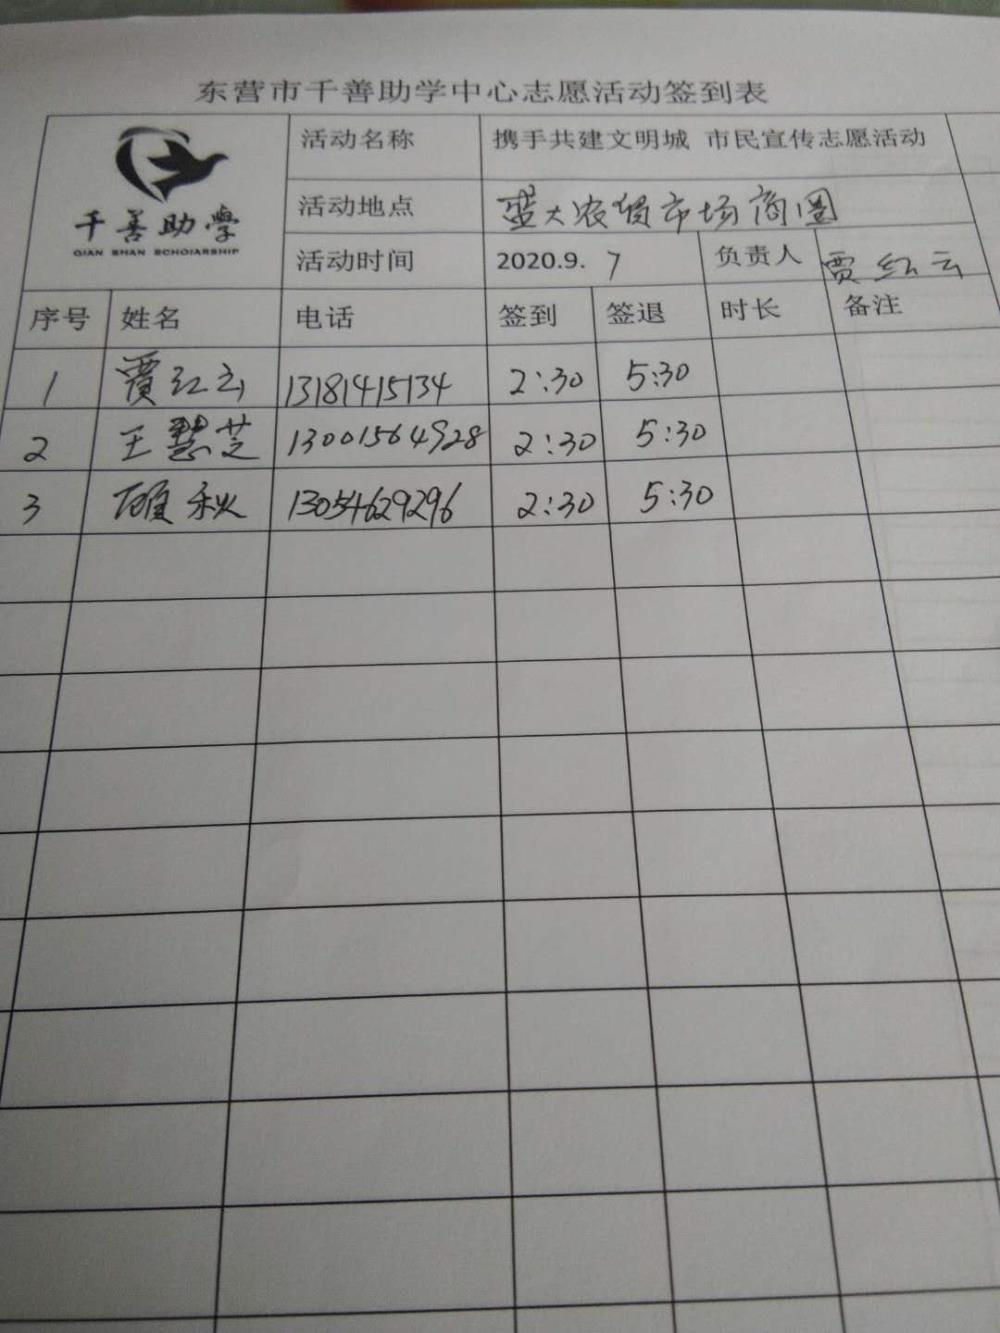 东营市千善助学中心志愿活动签到表
千善助学
QIAN SHAN SCHOIARSHIP
活动名称 携手共建文明城 市民宣传志愿活动
活动地点 盛大农贸市场商圈
活动时间 2020.9.7 负责人 贾红云
序号 姓名 电话 签到 签退 时长 备注
1 贾红云 13181415134 2:30 5:30
2 王慧芝 13001564928 2:30 5:30
3 顾秋 13054629296 2:30 5:30